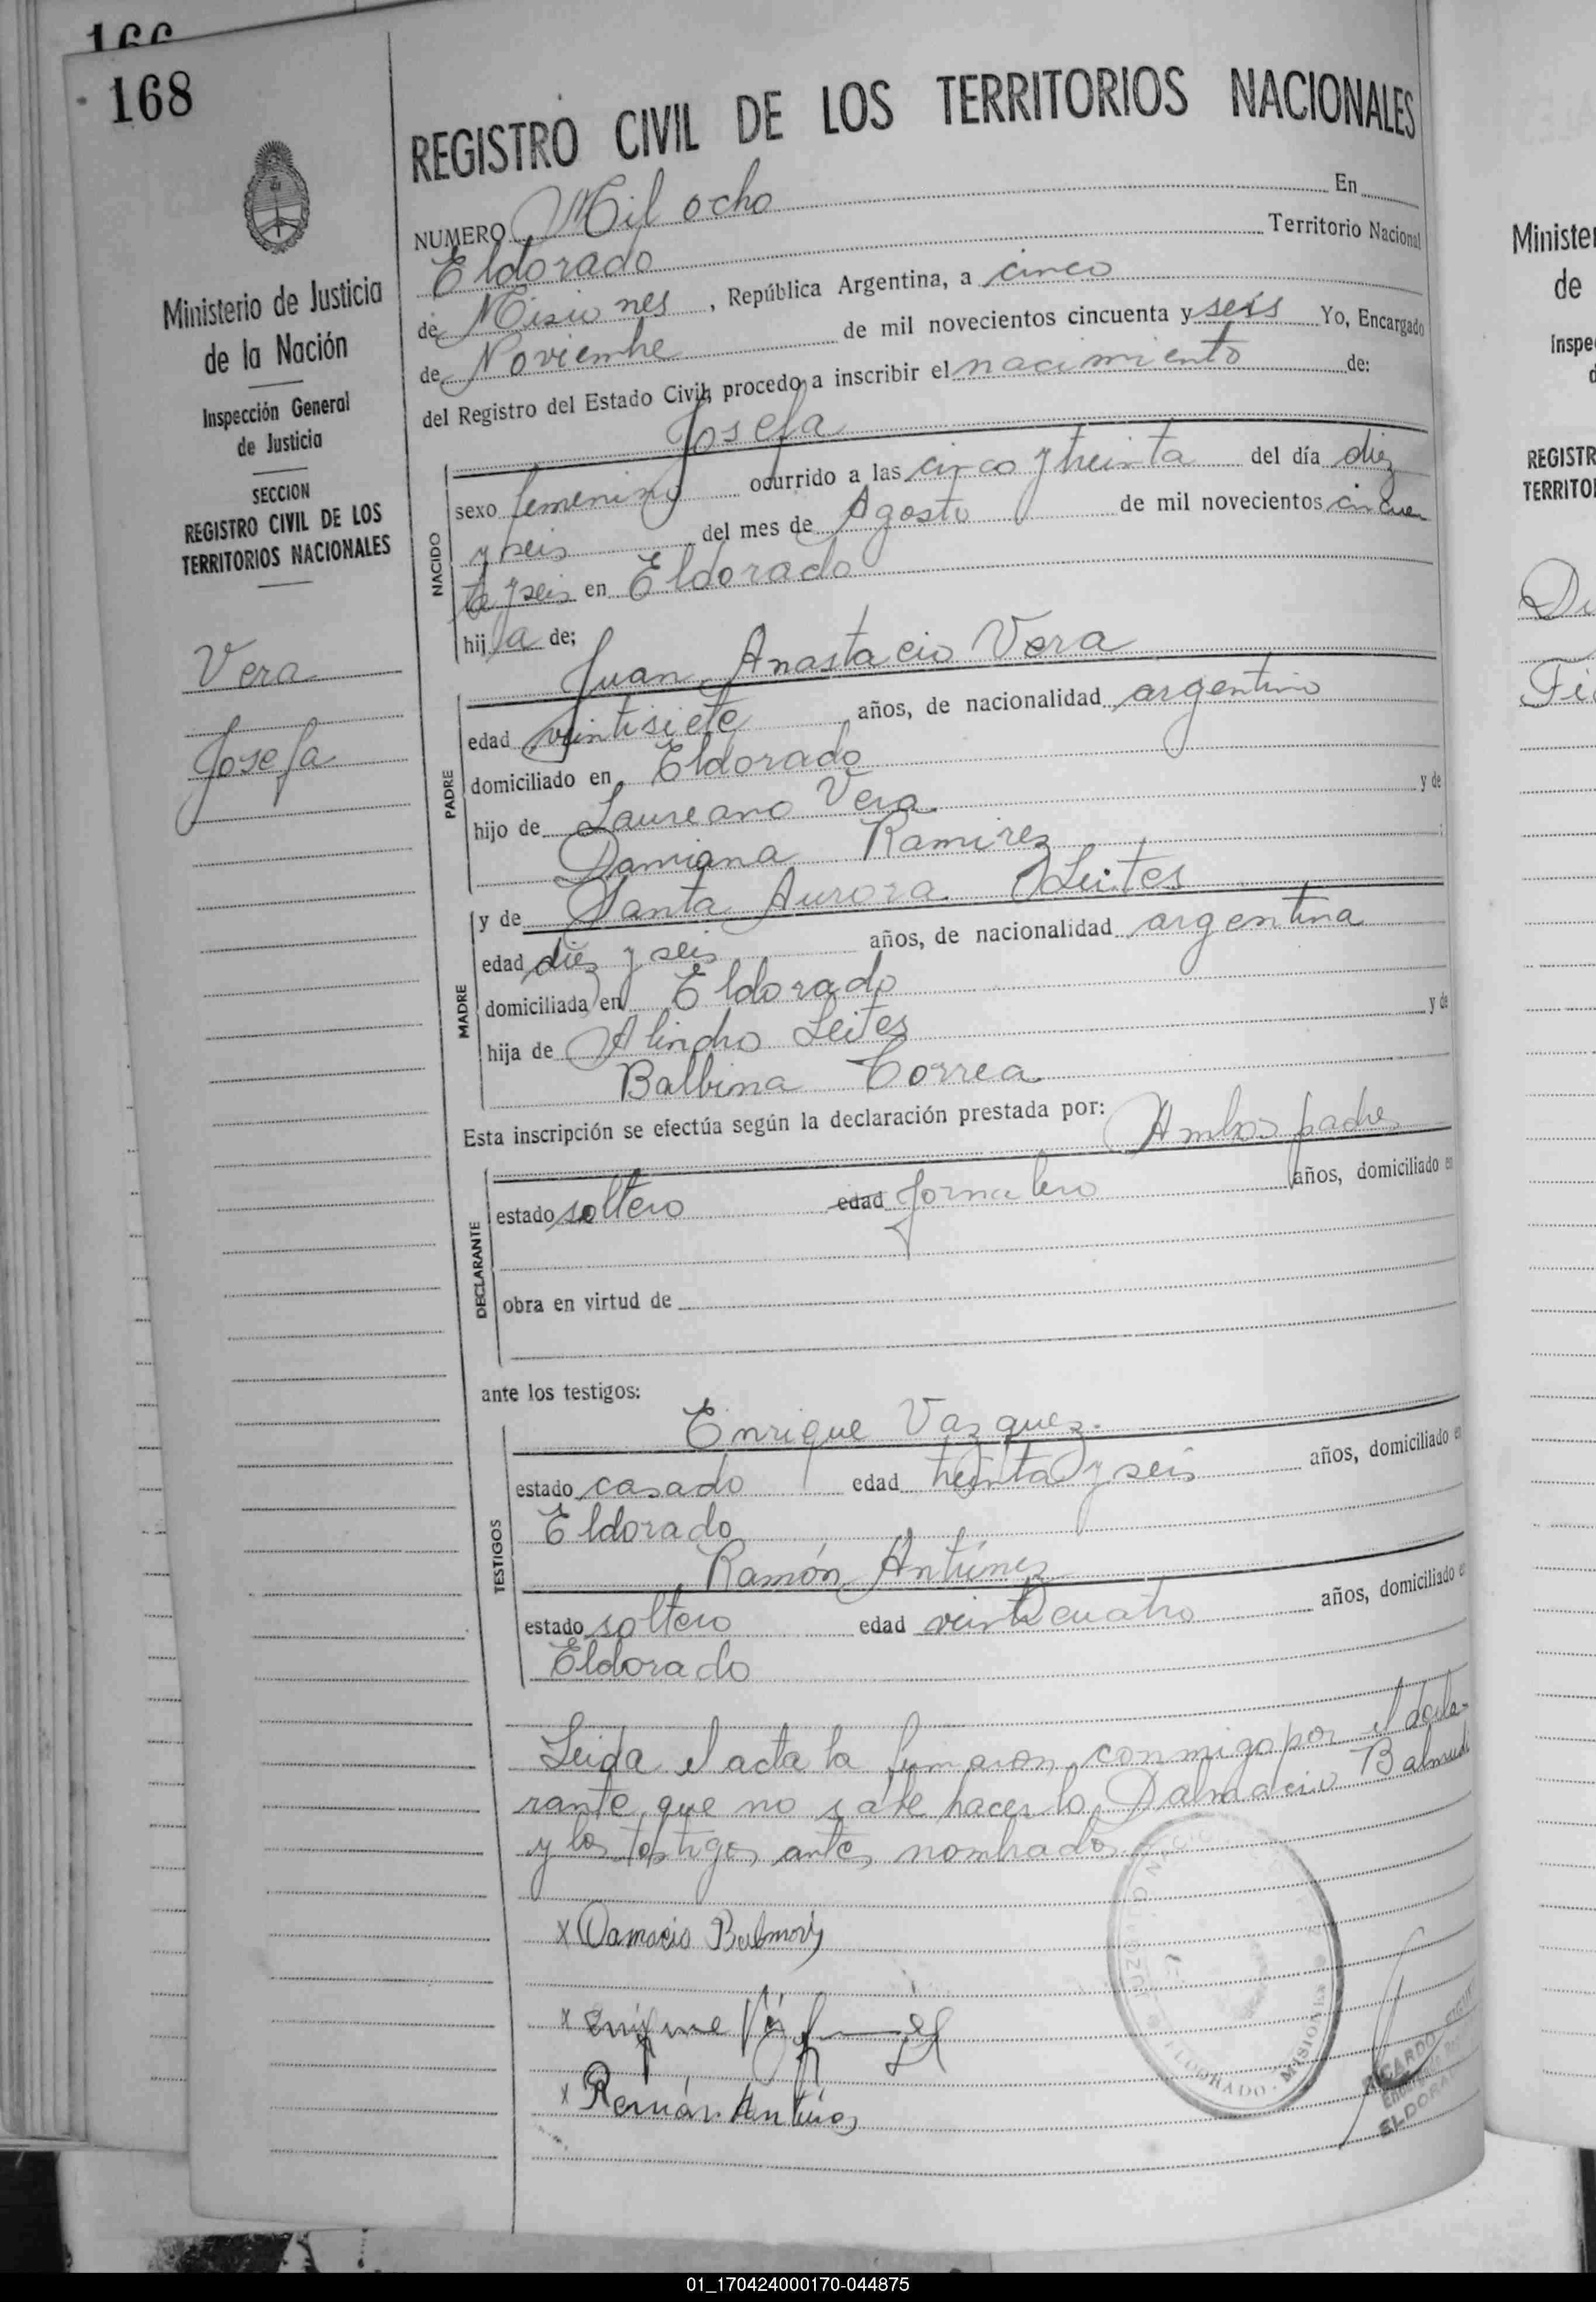 166
168
REGISTRO CIVIL DE LOS TERRITORIOS NACIONALES
NUMERO Mil ocho En
Eldorado Territorio Nacional
de Misiones, República Argentina, a cinco
de Noviembre de mil novecientos cincuenta y seis Yo, Encargado
del Registro del Estado Civil, procedo a inscribir el nacimiento de:
Josefa
NACIDO
sexo femenino ocurrido a las cinco y treinta del día diez
y seis del mes de Agosto de mil novecientos cincuen
ta y seis en Eldorado
hija de;
Juan Anastacio Vera
PADRE
edad veintisiete años, de nacionalidad argentino
domiciliado en Eldorado
hijo de Laureano Vera y de
Damiana Ramirez
MADRE
y de Santa Aurora Leites
edad diez y seis años, de nacionalidad argentina
domiciliada en Eldorado
hija de Alindro Leites y de
Balbina Correa
Esta inscripción se efectúa según la declaración prestada por:
Ambos padres
DECLARANTE
estado soltero edad Jornalero años, domiciliado en
obra en virtud de
ante los testigos:
Enrique Vazquez.
TESTIGOS
estado casado edad treinta y seis años, domiciliado en
Eldorado
Ramón Antúnez
estado soltero edad veinticuatro años, domiciliado en
Eldorado
Leida el acta la firmaron conmigo por el decla-
rante que no sabe hacerlo Dalmacio
y los testigos antes nombrados
x Damacio
x Enrique
x Ramón
ELDORADO - MISIONES
RICARDO
ELDORADO
Ministerio de Justicia
de la Nación
Inspección General
de Justicia
SECCION
REGISTRO CIVIL DE LOS
TERRITORIOS NACIONALES
Vera
Josefa
Minister
de
Inspe
REGISTR
TERRITO
01_170424000170-044875